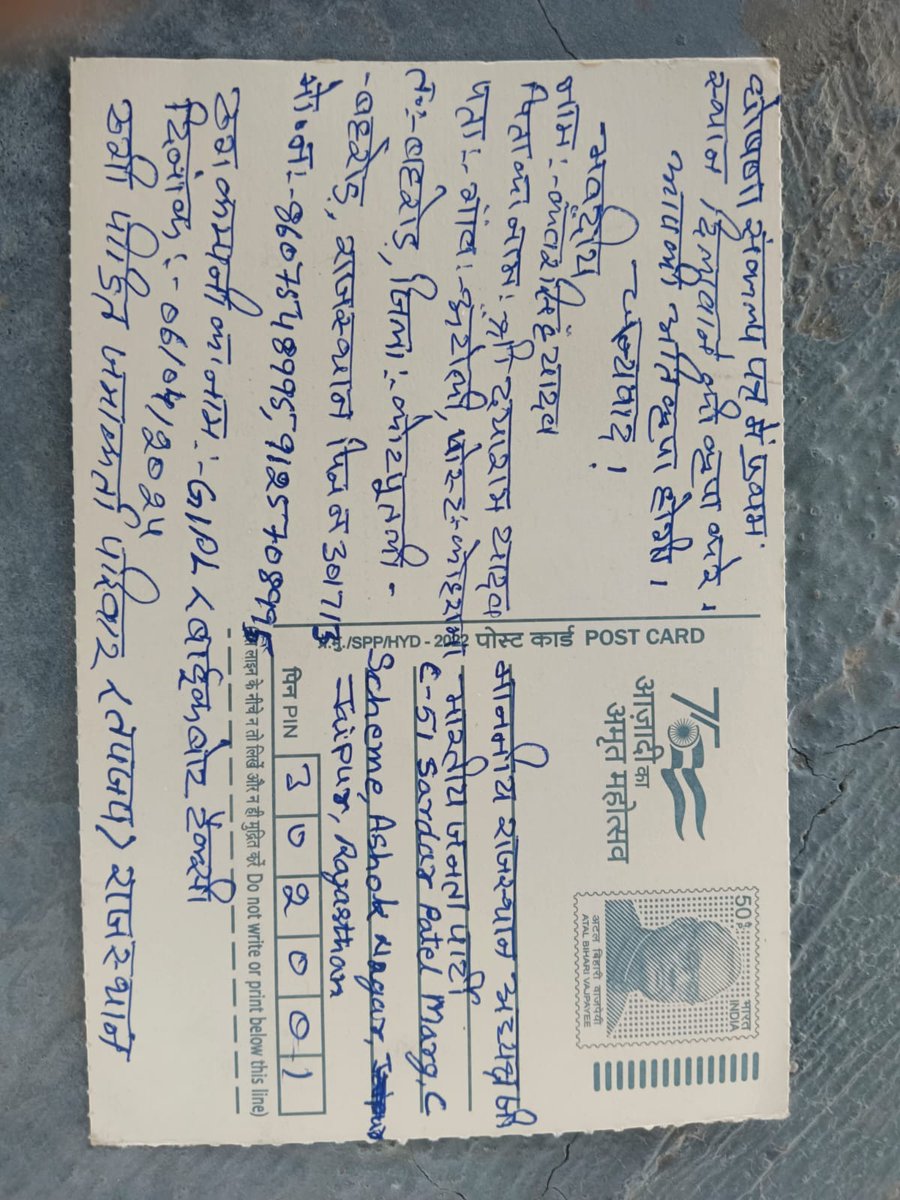 घोषणा संकल्प पत्र में प्रथम
स्थान दिलवाने की कृपा करे,
आपकी अति कृपा होगी।
धन्यवाद!
भवदीय
नाम:- भँवर सिंह यादव
पिता का नाम: श्री दयाराम यादव
पता:- गांव:- पोस्ट:-
तह:- बहरोड़, जिला:- कोटपुतली -
-बहरोड़, राजस्थान पिन न 301713
मो. न:-
ठग कम्पनी का नाम:- GIPL <बाईकबोट टेक्सी
दिनांक :- 06/04/2024
ठगी पीड़ित जमाकर्ता परिवार <तपजप> राजस्थान
POST CARD पोस्ट कार्ड /SPP/HYD - 2022
75
आज़ादी का
अमृत महोत्सव
50 P.
भारत
INDIA
अटल बिहारी वाजपेयी
ATAL BIHARI VAJPAYEE
माननीय राजस्थान अध्यक्ष जी
भारतीय जनता पार्टी
C-51 Sardar Patel Marg, C
Scheme, Ashok Nagar,
Jaipur, Rajasthan
पिन PIN 302001
लाइन के नीचे न तो लिखें और न ही मुद्रित करें Do not write or print below this line)